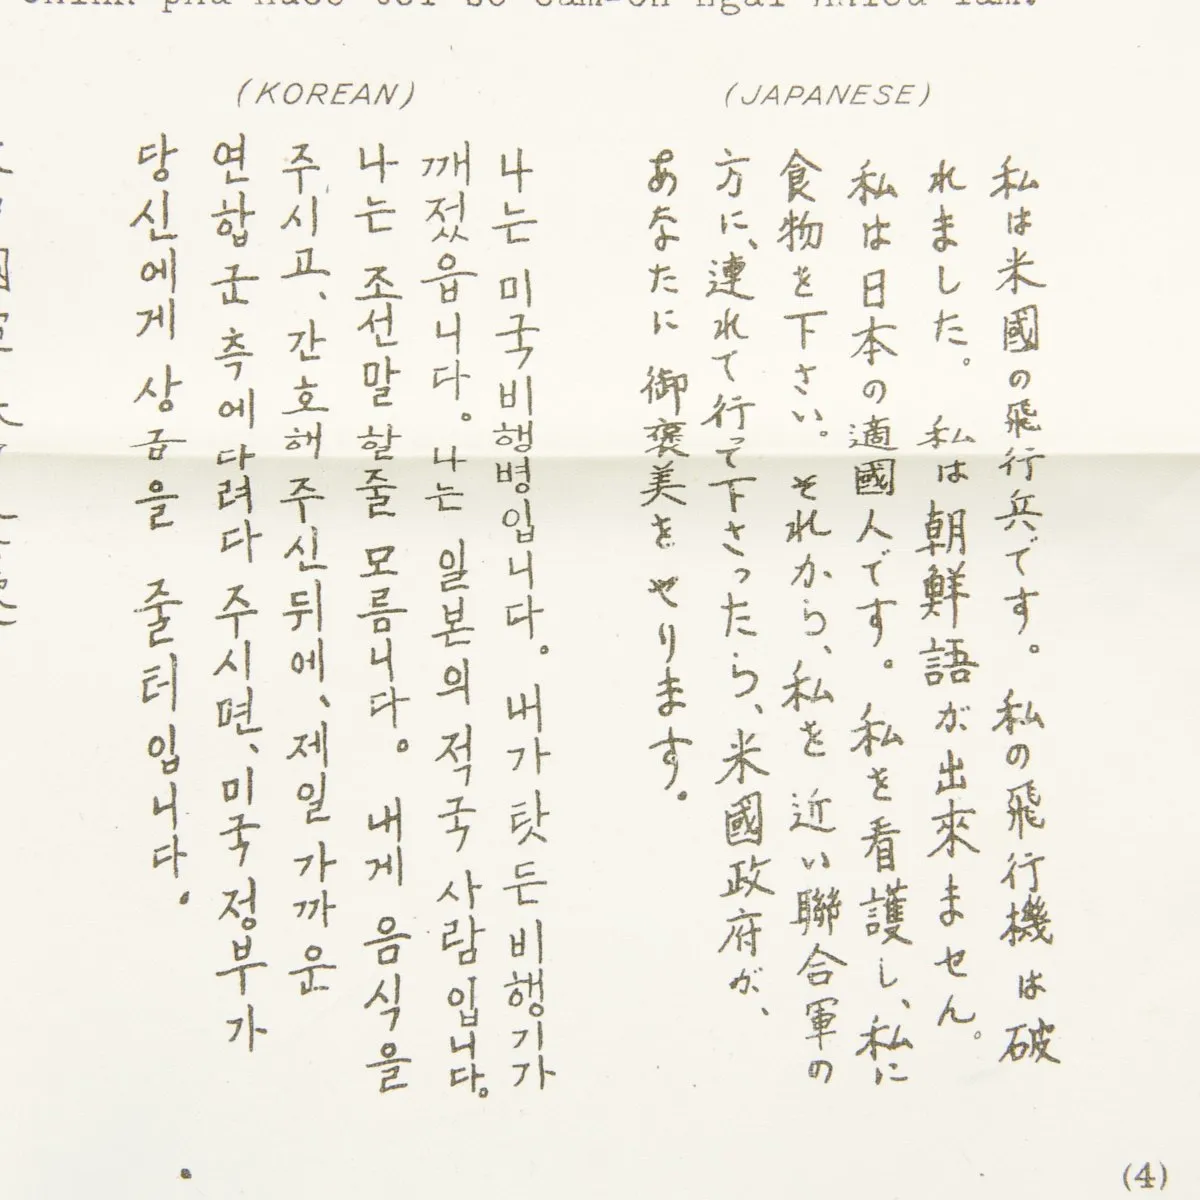 (KOREAN)
나는 미국비행병입니다。 내가 탓든 비행기가
깨젔읍니다。 나는 일본의 적국 사람입니다。
나는 조선말 할줄 모릅니다。 내게 음식을
주시고、간호해주신뒤에、제일 가까운
연합군측에다려다 주시면、미국 정부가
당신에게 상금을 줄터입니다.
(JAPANESE)
私は米國の飛行兵です。私の飛行機は破
れました。 私は朝鮮語が出來ません。
私は日本の適國人です。私を看護し、私に
食物を下さい。それから、私を近い聯合軍の
方に、連れて行って下さったら、米國政府が、
あなたに御褒美をやります.
(4)